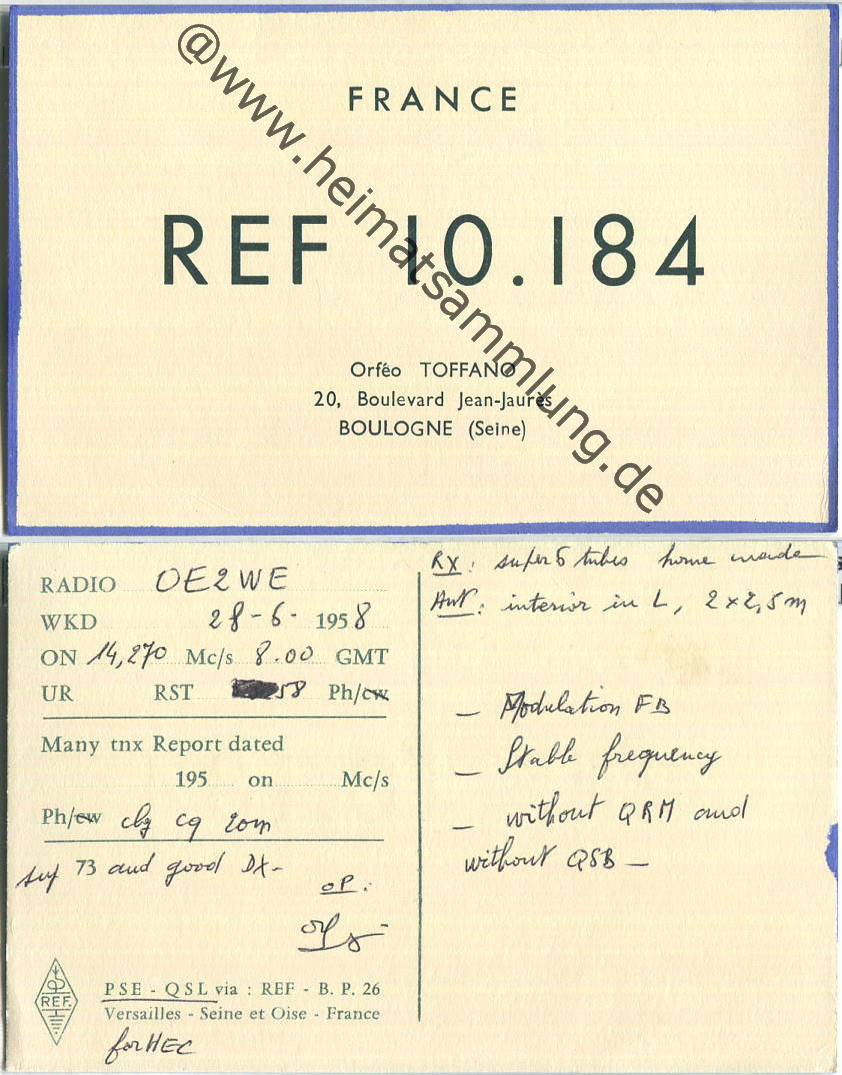 @www.heimatsammlung.de
FRANCE
REF 10.184
Orféo TOFFANO
20, Boulevard Jean-Jaurès
BOULOGNE (Seine)
RADIO OE2WE
WKD 28-6- 1958
ON 14,270 Mc/s 8.00 GMT
UR RST 58 Ph/cw
Many tnx Report dated
195 on Mc/s
Ph/cw clg cq 20m
73 and good DX-
OP:
REF
PSE - QSL via : REF - B. P. 26
Versailles - Seine et Oise - France
for HEC
RX: super 5 tubes home made
Ant: interior in L, 2x2,5m
- Modulation FB
- Stable frequency
- without QRM and
without QSB -